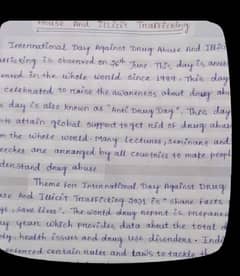 Abuse And Illicit Trafficking
International Day Against Drug Abuse And Illicit
Trafficking is observed on 26th June. This day is
in the whole world since 1989. This day
celebrated to raise the awareness about drug
day is also known as "Anti Drug Day". This day
to attain global support to get rid of drug abuse
the whole world. Many lectures, seminars and
are arranged by all countries to make people
understand drug abuse.
Theme for International Day Against Drug
And Illicit Trafficking 2021 is "Share Facts
save lives". The world drug report is prepared
year which provides data about the total
health issues and drug use disorders. India
certain rules and laws to tackle